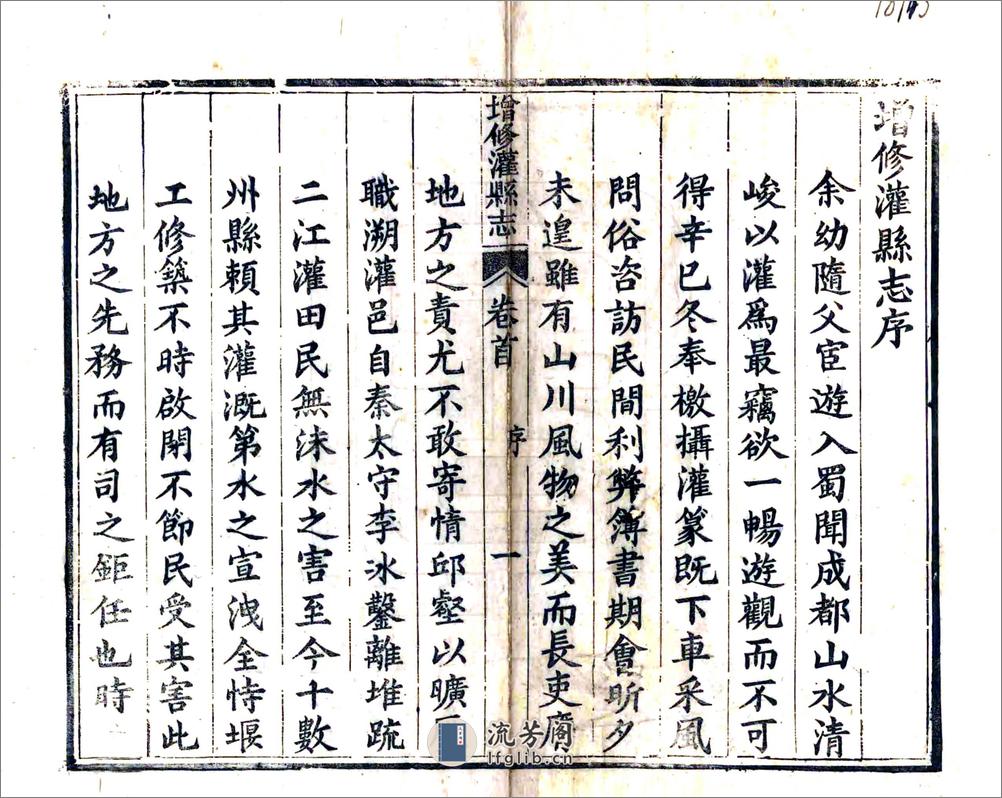 增修灌縣志序
余幼隨父宦遊入蜀聞成都山水清
峻以灌爲最竊欲一暢遊觀而不可
得辛巳冬奉檄攝灌篆既下車采風
問俗咨訪民間利弊簿書期會昕夕
未遑雖有山川風物之美而長吏膺
增修灌縣志 卷首 序 一
地方之責尤不敢寄情邱壑以曠
職溯灌邑自秦太守李冰鑿離堆疏
二江灌田民無沫水之害至今十數
州縣賴其灌溉第水之宣洩全恃堰
工修築不時啟閉不節民受其害此
地方之先務而有司之鉅任也時
流芳阁
lfglib.cn